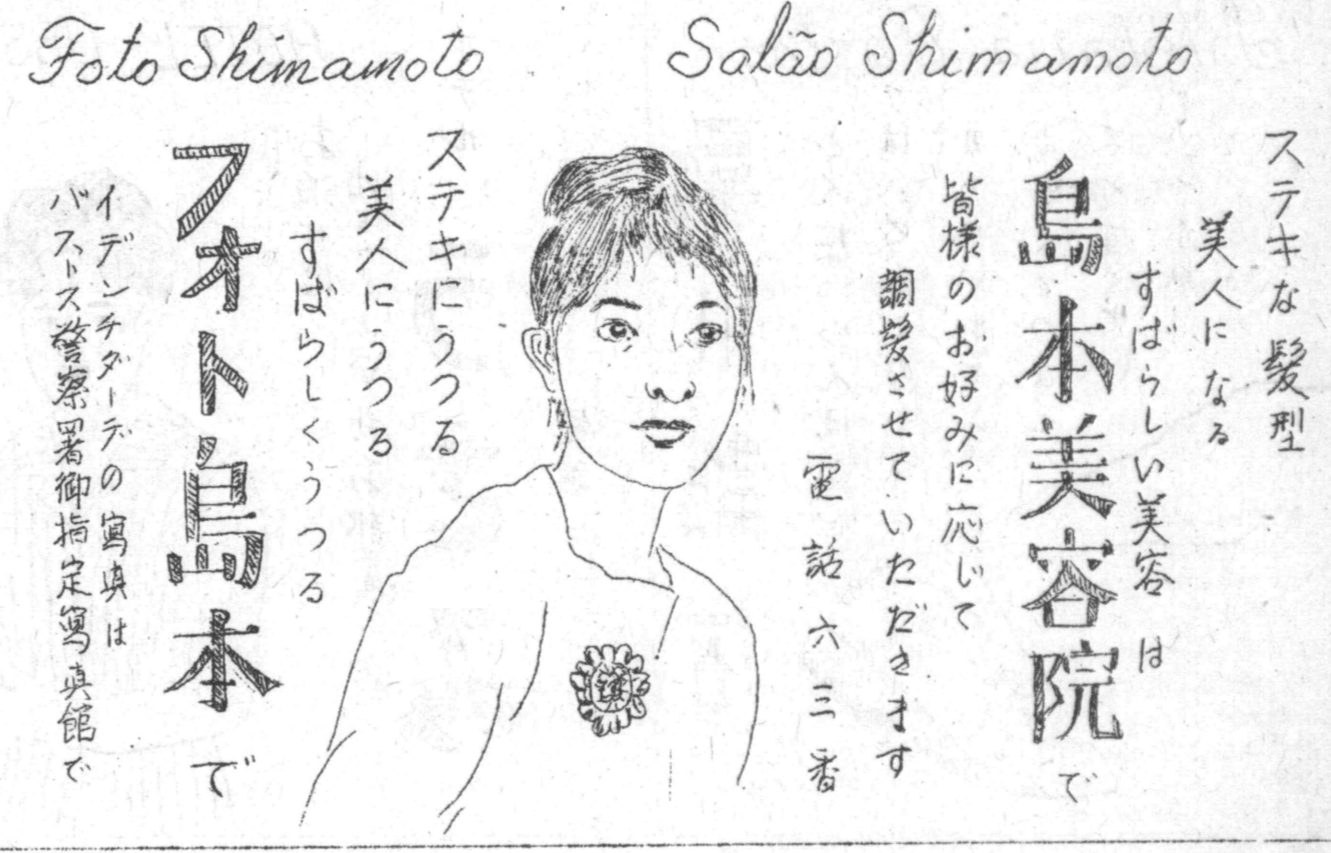 Foto Shimamoto
Salão Shimamoto
ステキな髪型
美人になる
すばらしい美容は
島本美容院で
皆様のお好みに応じて
調髪させていただきます
電話六三番
ステキにうつる
美人にうつる
すばらしくうつる
フォト島本で
イデンチダーデの寫真は
バストス警察署御指定寫真館で